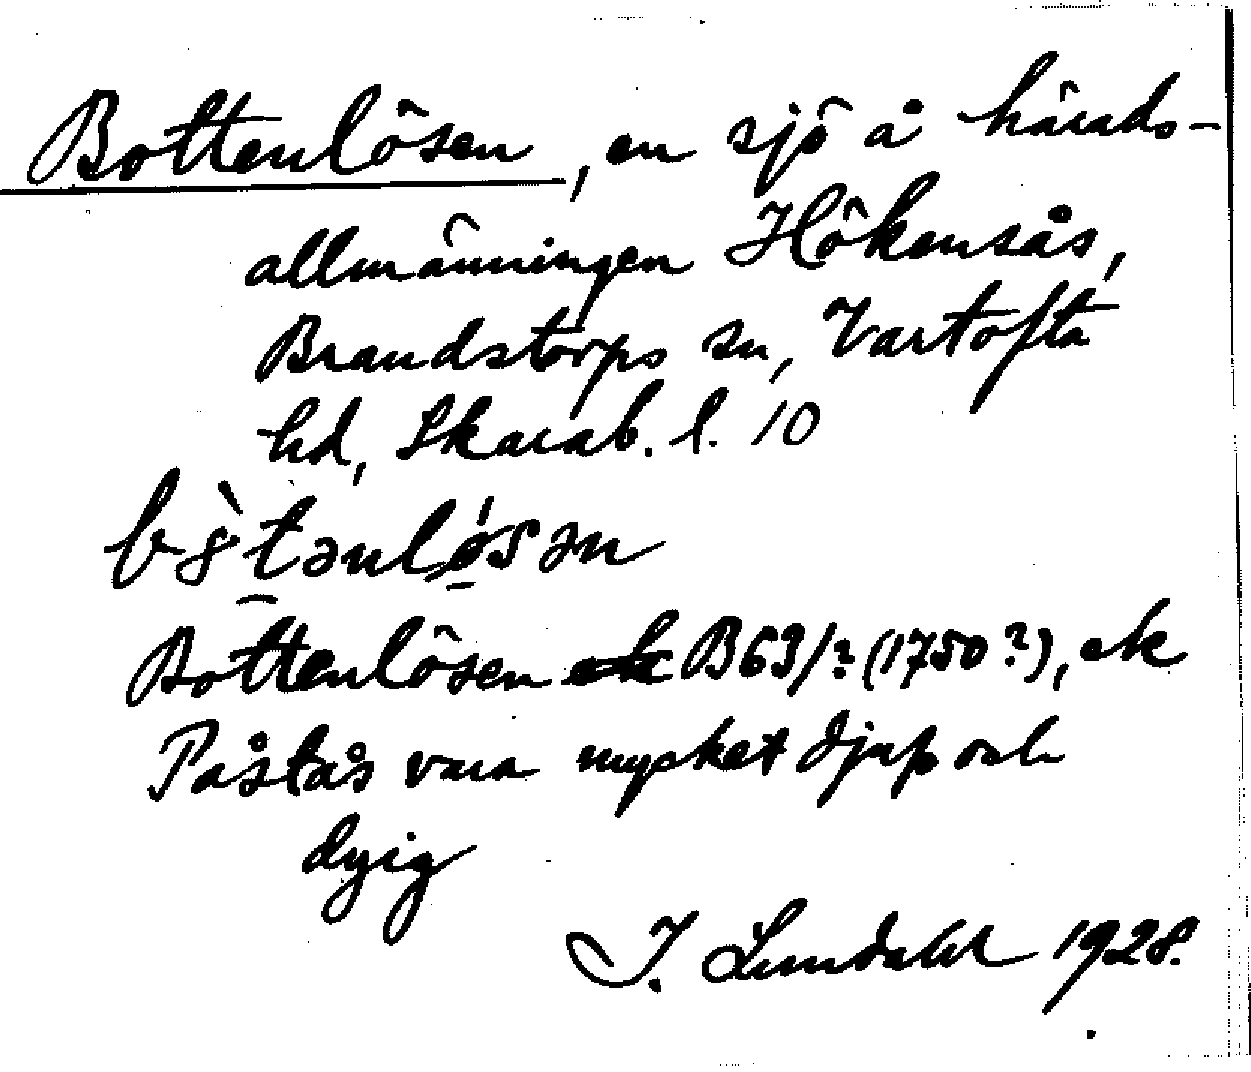 Bottenlösen, en sjö å härads-
allmänningen Hökensås,
Brandstorps sn, Vartofta
hd, Skarab. l. 10
Bottenlösen B63/? (1750?), ek
Påstås vara mycket djup och
dyig
I. Lundahl 1928.